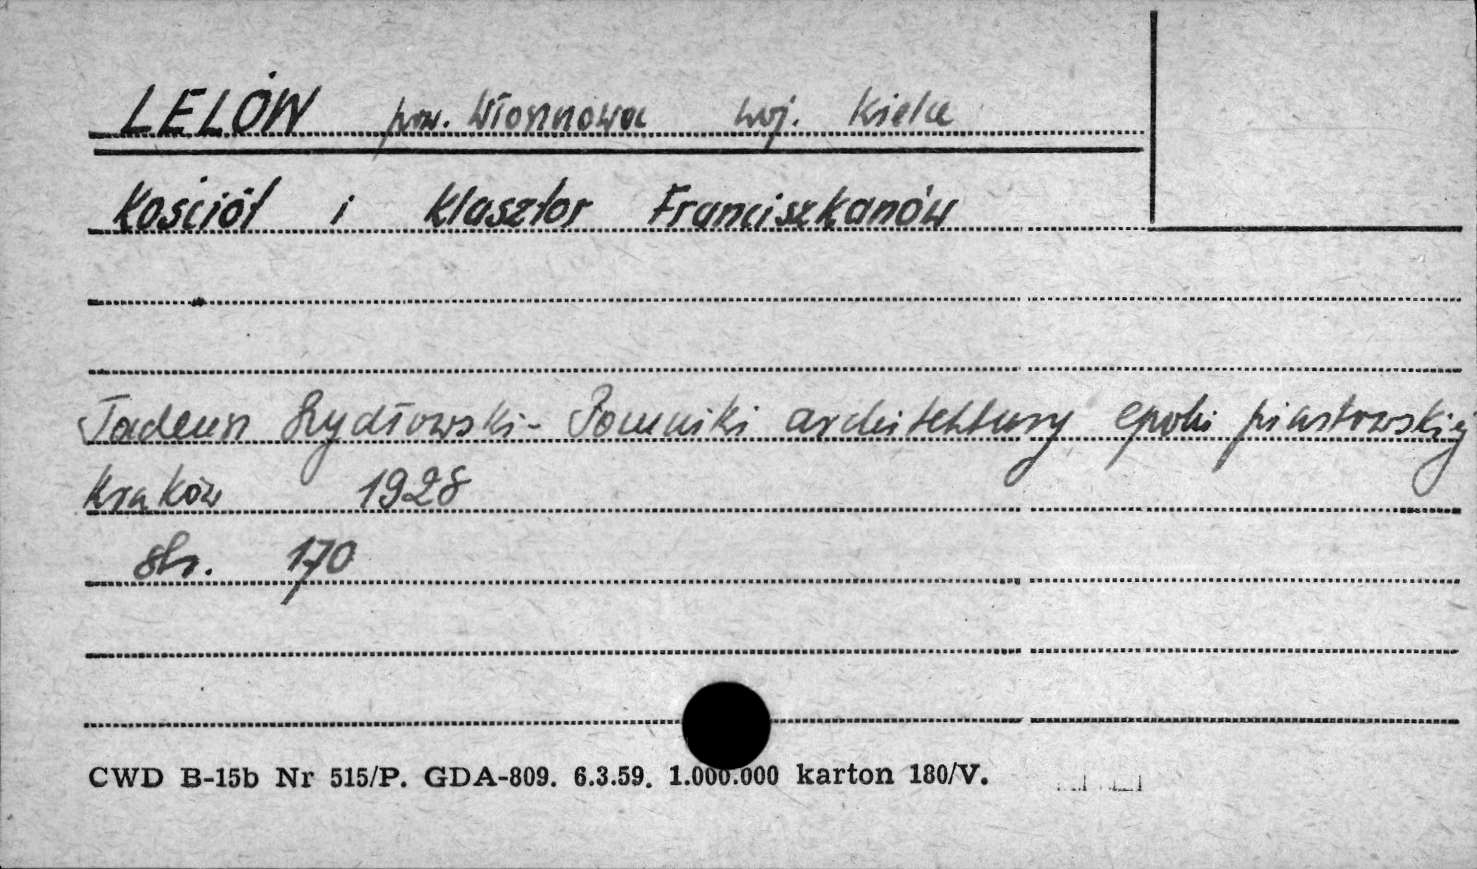 LELÓW pow. Włoszczowa woj. Kielce
Kościół i Klasztor Franciszkanów
Tadeusz Szydłowski - Pomniki architektury epoki piastowskiej
Kraków 1928
str. 170
CWD B-15b Nr 515/P. GDA-809. 6.3.59. 1.000.000 karton 180/V.